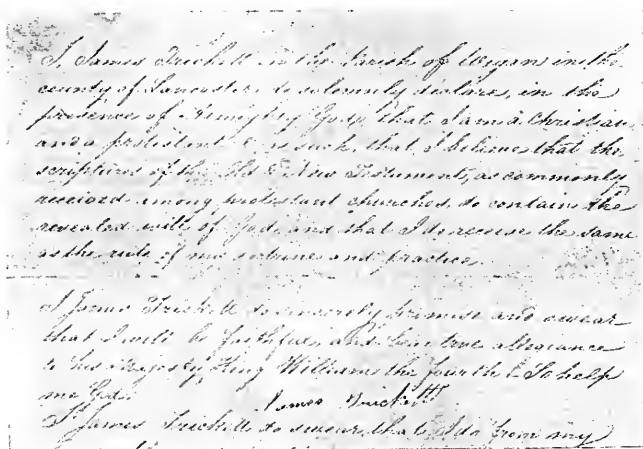 I, James Trickett in the Parish of Wigan in the
county of Lancaster do solemnly declare, in the
presence of Almighty God, that I am a Christian
and a protestant & as such, that I believe that the
scriptures of the Old & New Testament, as commonly
received among protestant churches, do contain the
revealed will of God, and that I do receive the same
as the rule of my and practice.
I James Trickett do sincerely promise and swear
that I will be faithful and bear true allegiance
to his Majesty King William the fourth So help
me God.
James Trickett
I James Trickett do swear, that I do from my